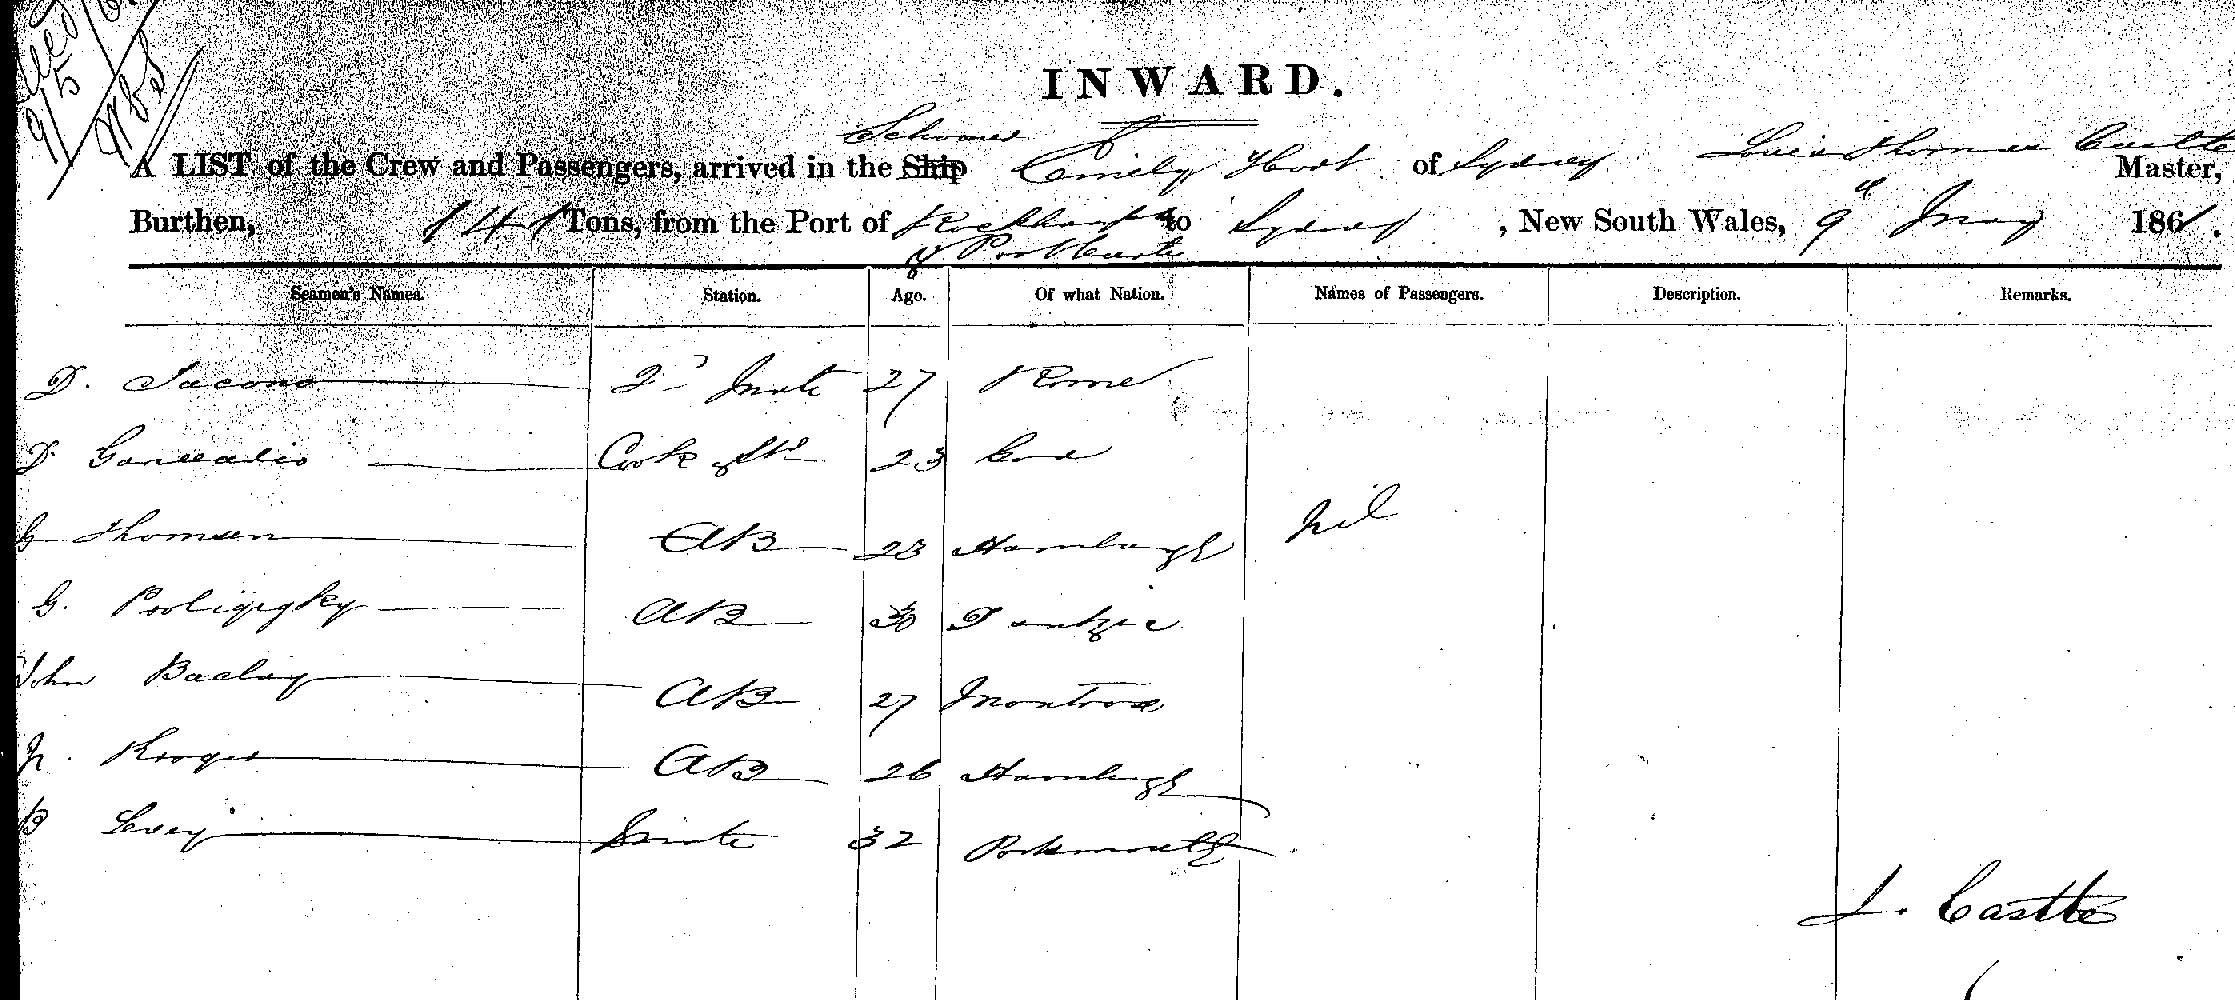 9/5
INWARD.
Schooner
A LIST of the Crew and Passengers, arrived in the Ship Emily Hort of Sydney Thomas Castle Master,
Burthen, 141 Tons, from the Port of to Sydney, New South Wales, 9th May 1861.
&
Seamen's Names. Station. Age. Of what Nation. Names of Passengers. Description. Remarks.
D. 2d Mate 27 Rome
D Cook & Std 23 Goa
G Thomsen AB 23 Hamburgh nil
G. AB 30 Dantzic
John AB 27 Montrose
N. Kroger AB 26 Hamburgh
B Levey Mate 32 Portsmouth
L. Castle